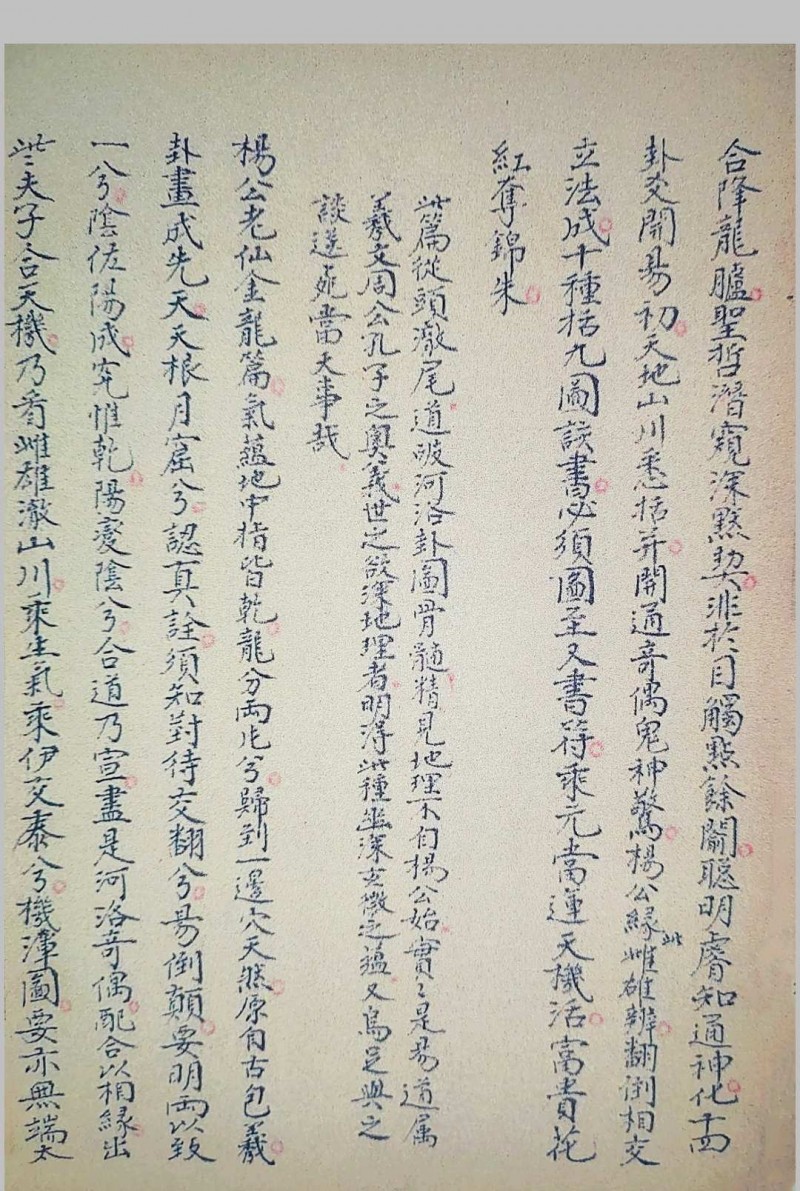 合降龍臚聖哲潛窺深黙契非於目觸㸃餘闗聪明睿知通神化十四
卦爻開易初天地山川悉括并開通竒偶鬼神驚楊公緣此雌雄辨翻倒相交
立法成十種括九圖談書必須圖至又書符乘元當運天機活富貴花
紅奪錦朱
此篇從頭澈尾道破河洛卦圖骨髓精見地理不自楊公始實〻是易道属
羲文周公孔子之奥義世之欲深地理者明得此種幽深玄微之蕴又烏足與之
談迷宛當天事哉
楊公老仙金龍篇氣蕴地中指皆乾龍分兩片兮歸到一邊穴天然原自古包羲
卦畫成先天天根月窟兮認真詮須知對待交翻兮易倒顛要明兩以致
一兮陰佐陽成究惟乾陽變陰兮合道乃宣盡是河洛竒偶配合以相緣出
此夫子合天機乃看雌雄澈山川乘生氣乘伊交泰兮機渾圖要亦無端太